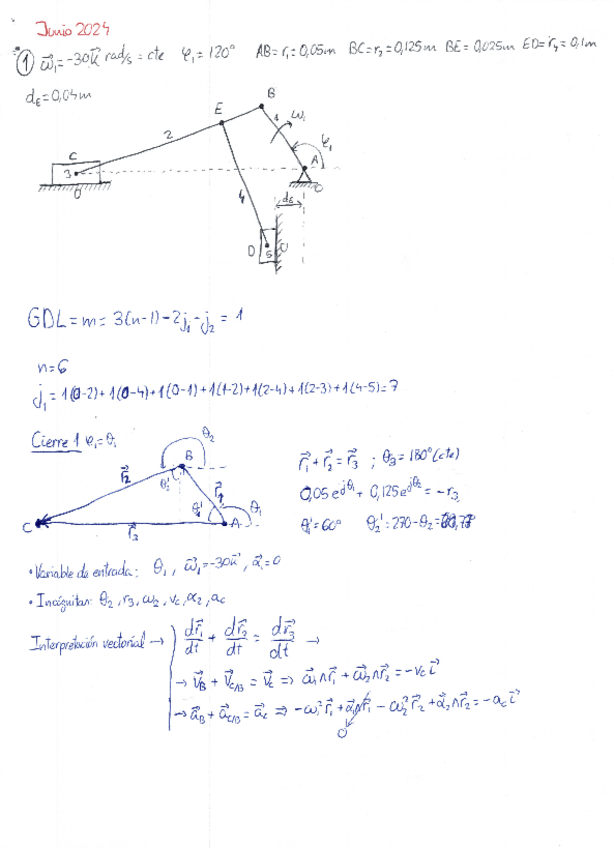 Junio 2024
① ω⃗₁=-30k⃗ rad/s = cte φ₁=120° AB=r₁=0,05m BC=r₂=0,125m BE=0,025m ED=r₄=0,1m
d₆=0,04m
B
E
1 ω₁
2
φ₁
C
A
3
O
O
4
d₆
D
5
O
GDL=m=3(n-1)-2j₁-j₂=1
n=6
j₁=1(0-2)+1(0-4)+1(0-1)+1(1-2)+1(2-4)+1(2-3)+1(4-5)=7
Cierre 1 φ₁=θ₁
θ₂
B
r⃗₂
θ₂'
r⃗₁
θ₁'
θ₁
C
r⃗₃
A
r⃗₁+r⃗₂=r⃗₃ ; θ₃=180°(cte)
0,05e^jθ₁+0,125e^jθ₂=-r₃
θ₁'=60° θ₂'=270-θ₂=
• Variable de entrada: θ₁, ω⃗₁=-30k⃗, α⃗₁=0
• Incógnitas: θ₂, r₃, ω₂, v_C, α₂, a_C
Interpretación vectorial → dr⃗₁/dt + dr⃗₂/dt = dr⃗₃/dt →
→ v⃗_B+v⃗_C/B=v⃗_C ⇒ ω⃗₁∧r⃗₁+ω⃗₂∧r⃗₂=-v_C i⃗
→ a⃗_B+a⃗_C/B=a⃗_C ⇒ -ω₁²r⃗₁+α⃗₁∧r⃗₁-ω₂²r⃗₂+α⃗₂∧r⃗₂=-a_C i⃗
0